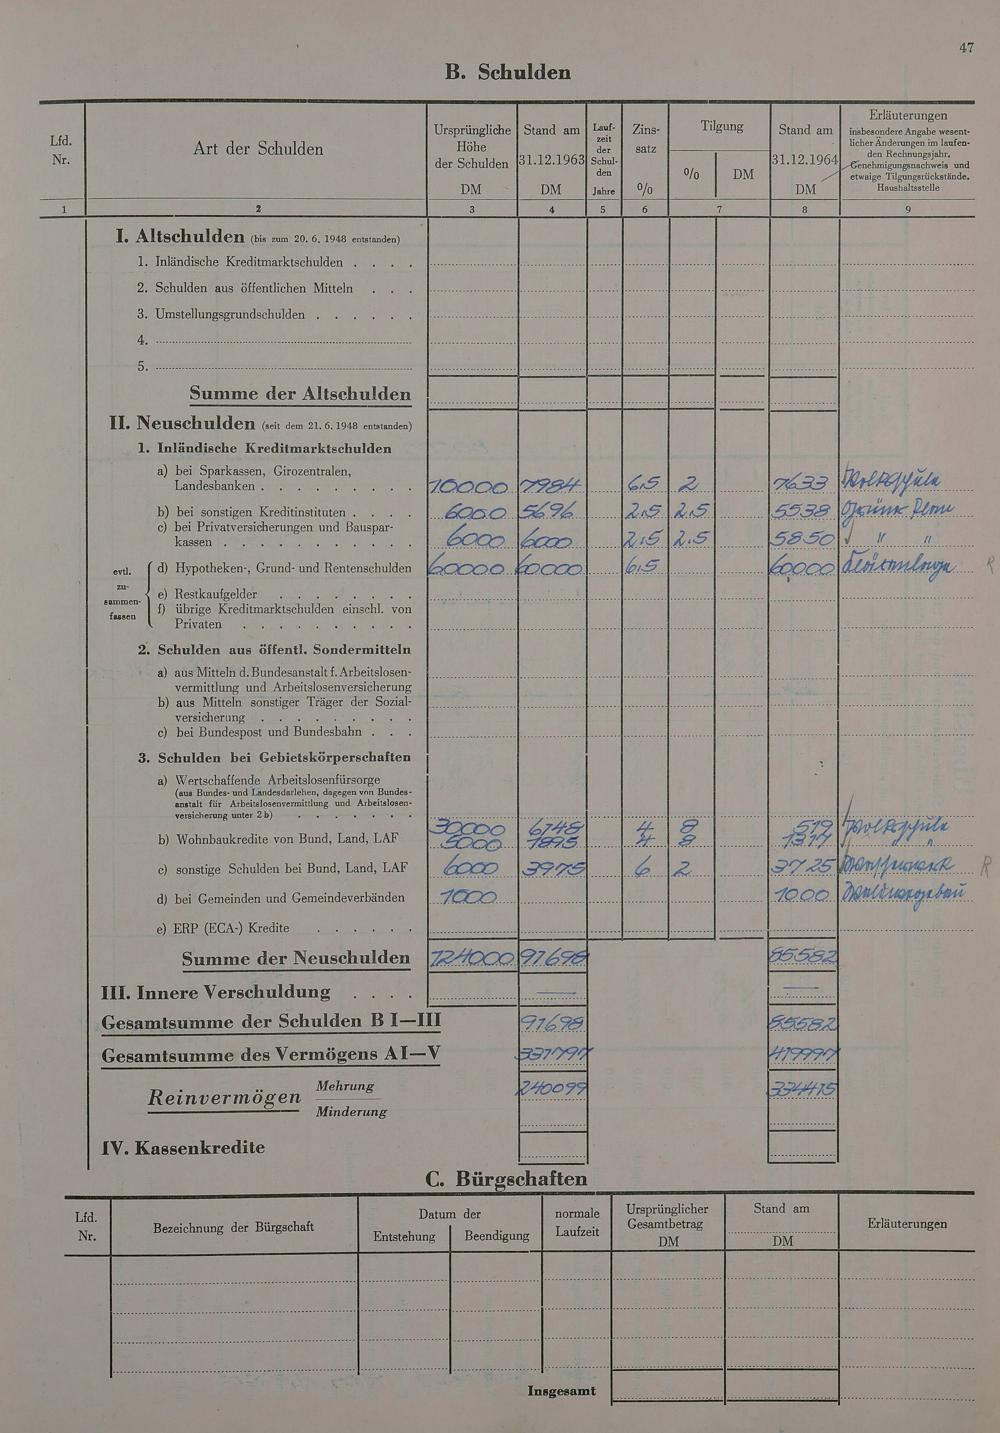 47
B. Schulden
Lfd. Nr.
Art der Schulden
Ursprüngliche Höhe der Schulden DM
Stand am 31.12.1963 DM
Lauf-zeit der Schul-den Jahre
Zins-satz %
Tilgung
% DM
Stand am 31.12.1964 DM
Erläuterungen
insbesondere Angabe wesent-
licher Änderungen im laufen-
den Rechnungsjahr,
Genehmigungsnachweis und
etwaige Tilgungsrückstände.
Haushaltsstelle
1 2 3 4 5 6 7 8 9
I. Altschulden (bis zum 20. 6. 1948 entstanden)
1. Inländische Kreditmarktschulden . . . .
2. Schulden aus öffentlichen Mitteln . . .
3. Umstellungsgrundschulden . . . . . .
4.
5.
Summe der Altschulden
II. Neuschulden (seit dem 21. 6. 1948 entstanden)
1. Inländische Kreditmarktschulden
a) bei Sparkassen, Girozentralen,
Landesbanken . . . . . . . . . 10000 7984 6,5 2 7633 Volksschule
b) bei sonstigen Kreditinstituten . . . . 6000 5696 2,5 2,5 5538 Grüner Plan
c) bei Privatversicherungen und Bauspar-
kassen . . . . . . . . . . . 6000 6000 2,5 2,5 5850 " "
evtl. zu-sammen-fassen
d) Hypotheken-, Grund- und Rentenschulden 60000 60000 6,5 60000 R
e) Restkaufgelder . . . . . . . .
f) übrige Kreditmarktschulden einschl. von
Privaten . . . . . . . . . .
2. Schulden aus öffentl. Sondermitteln
a) aus Mitteln d. Bundesanstalt f. Arbeitslosen-
vermittlung und Arbeitslosenversicherung
b) aus Mitteln sonstiger Träger der Sozial-
versicherung . . . . . . . . .
c) bei Bundespost und Bundesbahn . . .
3. Schulden bei Gebietskörperschaften
a) Wertschaffende Arbeitslosenfürsorge
(aus Bundes- und Landesdarlehen, dagegen von Bundes-
anstalt für Arbeitslosenvermittlung und Arbeitslosen-
versicherung unter 2b) . . . . . . .
30000 6148 4 8 519 Volksschule
b) Wohnbaukredite von Bund, Land, LAF 5000 1895 4 8 1317 "
c) sonstige Schulden bei Bund, Land, LAF 6000 3975 6 2 3725 R
d) bei Gemeinden und Gemeindeverbänden 1000 1000
e) ERP (ECA-) Kredite . . . . . .
Summe der Neuschulden 124000 91698 85582
III. Innere Verschuldung . . . . — —
Gesamtsumme der Schulden B I—III 91698 85582
Gesamtsumme des Vermögens A I—V 331797 419997
Reinvermögen Mehrung 240099 334415
Minderung
IV. Kassenkredite
C. Bürgschaften
Lfd. Nr.
Bezeichnung der Bürgschaft
Datum der
Entstehung Beendigung
normale Laufzeit
Ursprünglicher Gesamtbetrag DM
Stand am
DM
Erläuterungen
Insgesamt